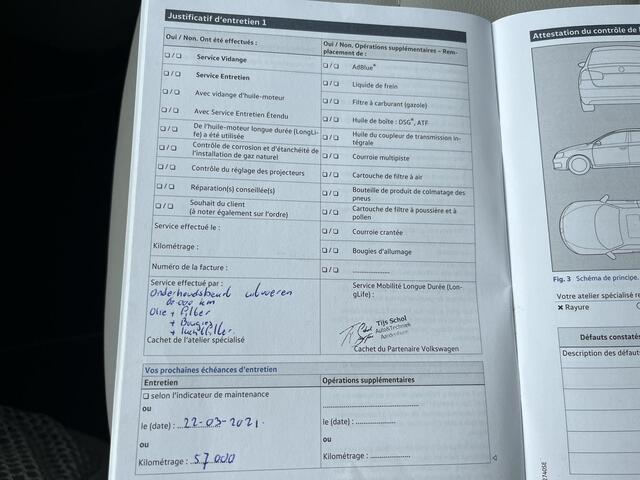 Justificatif d'entretien 1
Oui / Non. Ont été effectués :
❑ / ❑ Service Vidange
❑ / ❑ Service Entretien
❑ / ❑ Avec vidange d'huile-moteur
❑ / ❑ Avec Service Entretien Étendu
❑ / ❑ De l'huile-moteur longue durée (LongLi-
fe) a été utilisée
❑ / ❑ Contrôle de corrosion et d'étanchéité de
l'installation de gaz naturel
❑ / ❑ Contrôle du réglage des projecteurs
❑ / ❑ Réparation(s) conseillée(s)
❑ / ❑ Souhait du client
(à noter également sur l'ordre)
Service effectué le :
Kilométrage :
Numéro de la facture :
Service effectué par :
Onderhoudsbeurt uitvoeren
km
Olie + Filter
+ Bougies
+ Luchtfilter.
Cachet de l'atelier spécialisé
Oui / Non. Opérations supplémentaires – Rem-
placement de :
❑ / ❑ AdBlue®
❑ / ❑ Liquide de frein
❑ / ❑ Filtre à carburant (gazole)
❑ / ❑ Huile de boîte : DSG®, ATF
❑ / ❑ Huile du coupleur de transmission in-
tégrale
❑ / ❑ Courroie multipiste
❑ / ❑ Cartouche de filtre à air
❑ / ❑ Bouteille de produit de colmatage des
pneus
❑ / ❑ Cartouche de filtre à poussière et à
pollen
❑ / ❑ Courroie crantée
❑ / ❑ Bougies d'allumage
❑ / ❑ ................
Service Mobilité Longue Durée (Lon-
gLife) :
Tijs Schol
Auto&Techniek
Cachet du Partenaire Volkswagen
Vos prochaines échéances d'entretien
Entretien
❑ selon l'indicateur de maintenance
ou
le (date) : 22-03-2021
ou
Kilométrage : 57000
Opérations supplémentaires
................
ou
le (date) : ................
ou
Kilométrage: ................
Attestation du contrôle de l
Fig. 3 Schéma de principe.
Votre atelier spécialisé re
✖ Rayure
Défauts constatés
Description des défauts